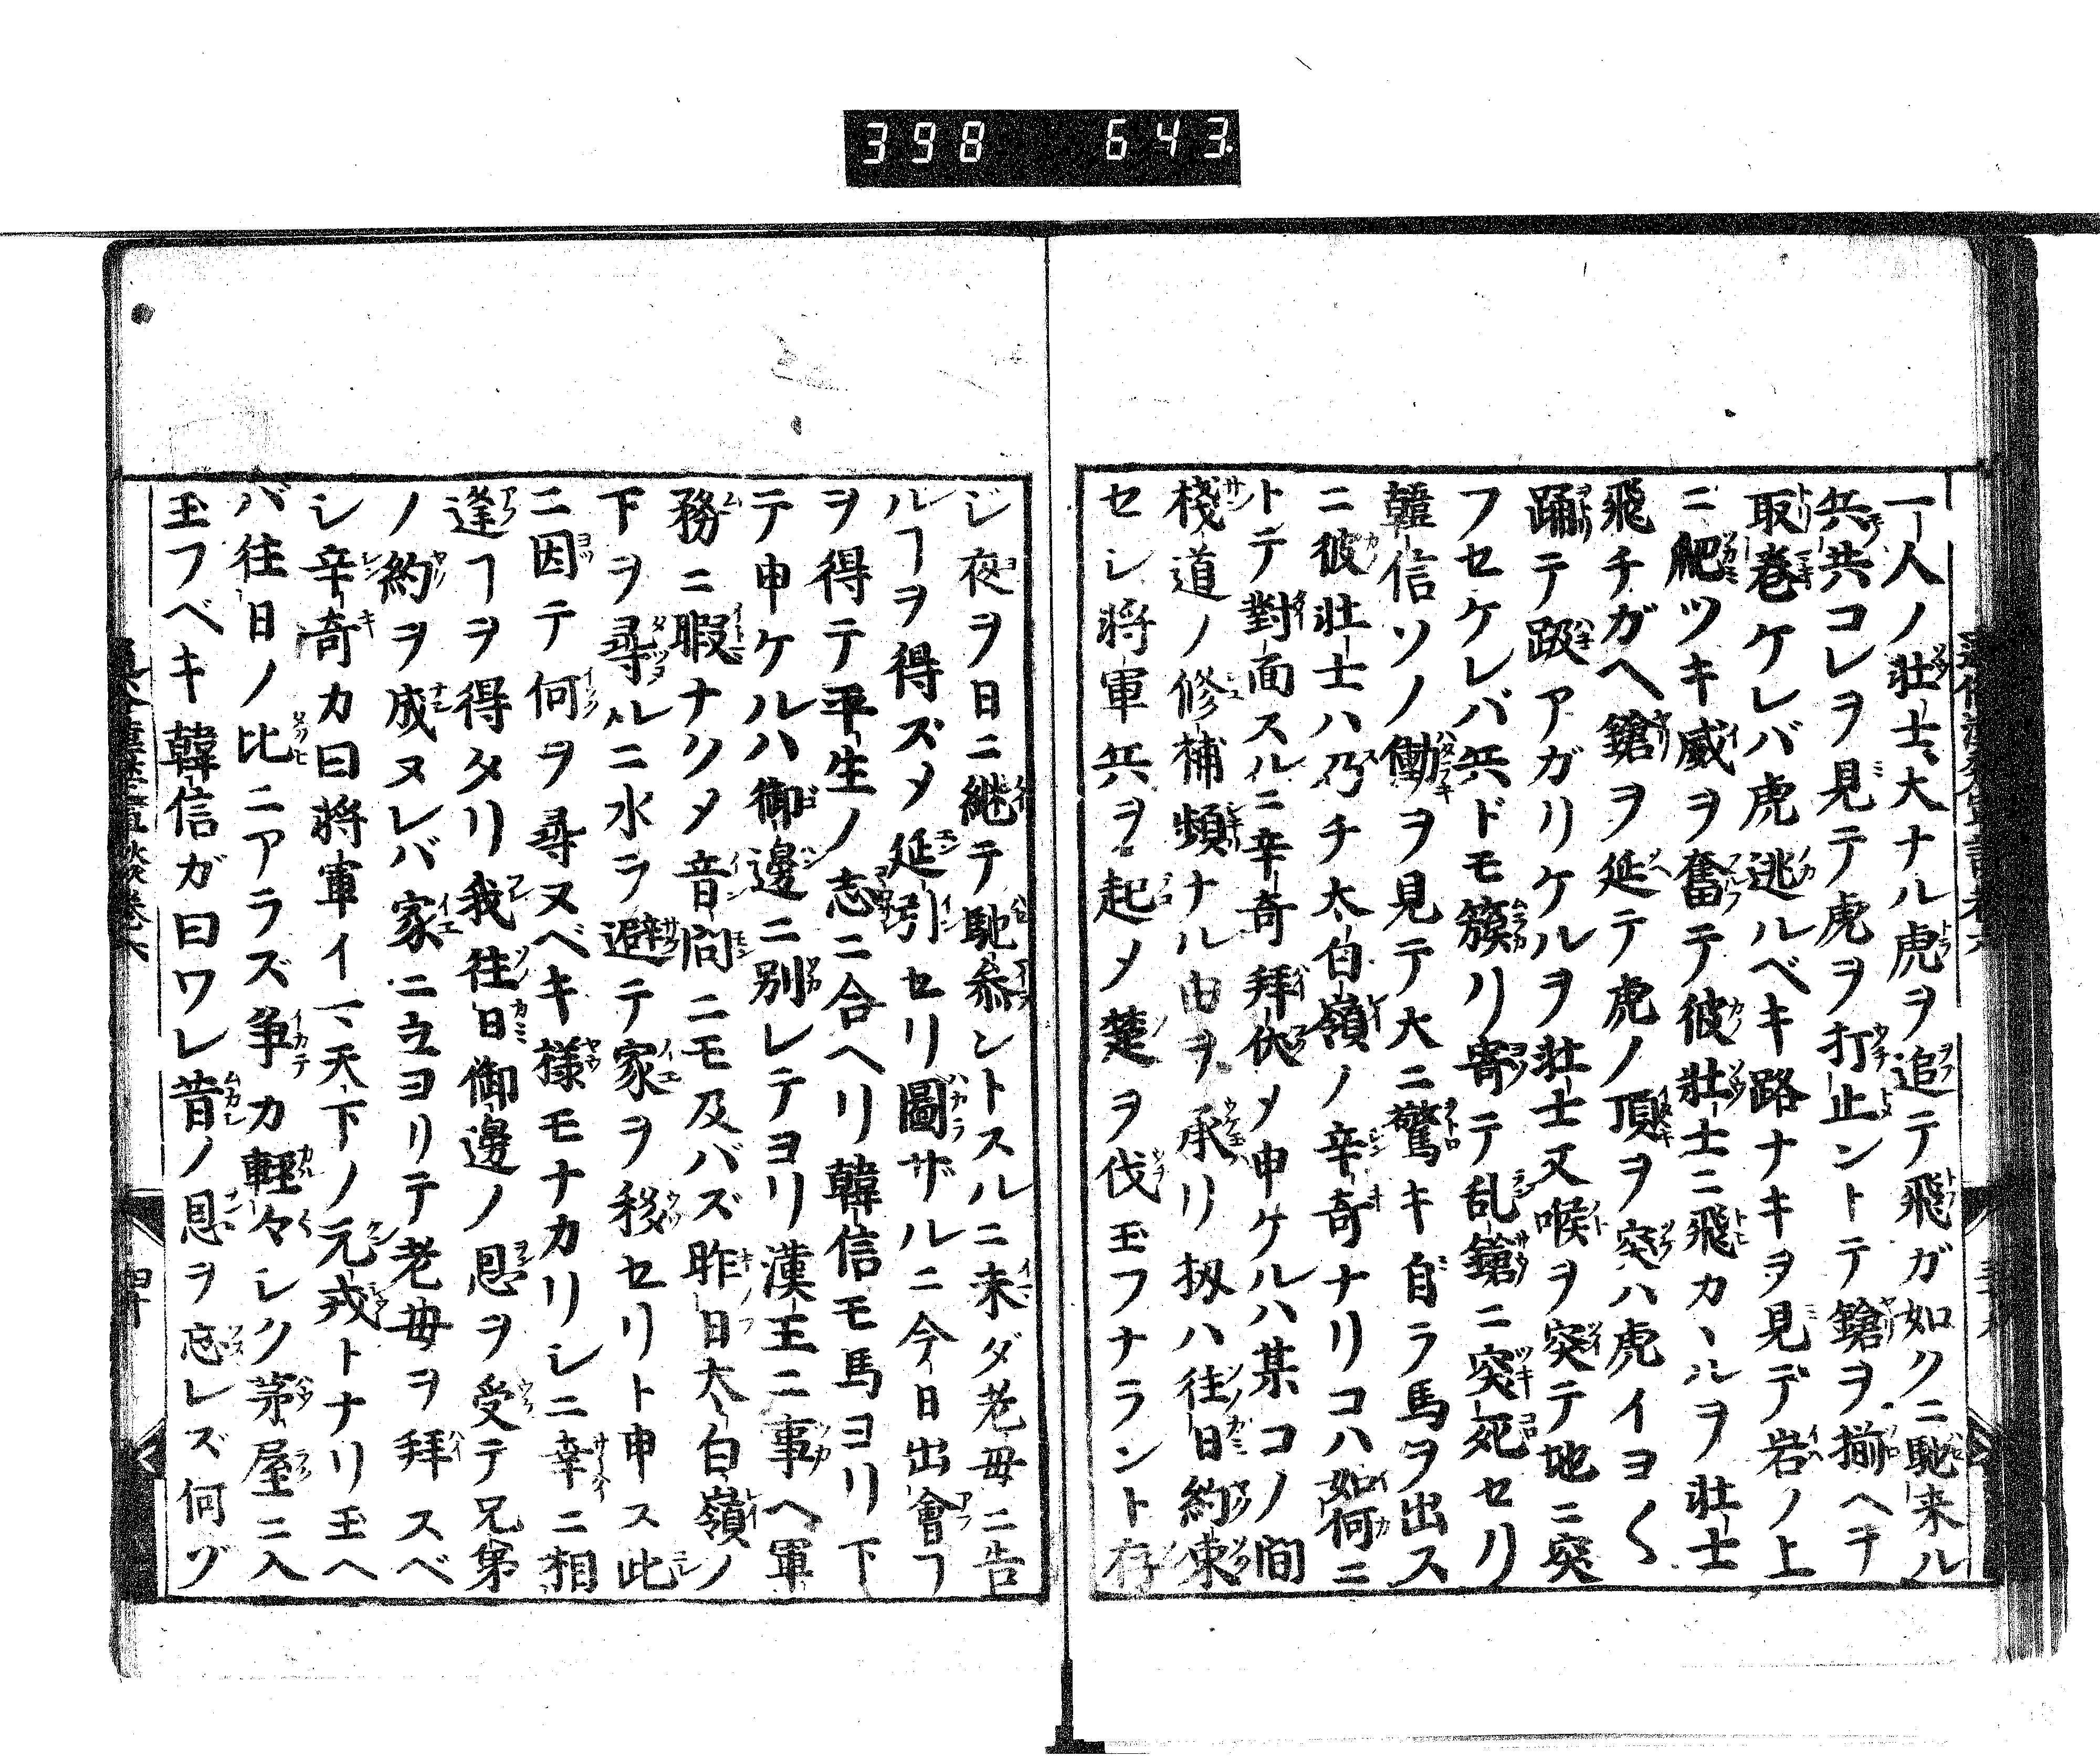 398 643
一人ノ壮士大ナル虎ヲ追テ飛ガ如クニ馳来ル
兵共コレヲ見テ虎ヲ打止ントテ鎗ヲ揃ヘテ
取巻ケレバ虎逃ルベキ路ナキヲ見デ岩ノ上
ニ爬ツキ威ヲ奮テ彼壮士ニ飛カヽルヲ壮士
飛チガヘ鎗ヲ延テ虎ノ頂ヲ突ハ虎イヨ〱
踊テ跋アガリケルヲ壮士又喉ヲ突テ地ニ突
フセケレバ兵ドモ簇リ寄テ乱鎗ニ突死セリ
韓信ソノ働ヲ見テ大ニ驚キ自ラ馬ヲ出ス
ニ彼壮士ハ乃チ太白嶺ノ辛奇ナリコハ如何ニ
トテ對面スルニ辛奇拜伏〆申ケルハ某コノ間
棧道ノ修補頻ナル由ヲ承リ扨ハ往日約束
セシ將軍兵ヲ起〆楚ヲ伐玉フナラント存
ジ夜ヲ日ニ継テ馳叅ントスルニ未ダ老母ニ告
ルヿヲ得ズ〆延引セリ圖ザルニ今日出會フ
ヲ得テ平生ノ志ニ合ヘリ韓信モ馬ヨリ下
テ申ケルハ御邊ニ別レテヨリ漢王ニ事ヘ軍
務ニ暇ナリ〆音問ニモ及バズ昨日太白嶺ノ
下ヲ尋ルニ水ラ避テ家ヲ移セリト申ス此
ニ因テ何ヲ尋ヌベキ様モナカリシニ幸ニ相
逢ヿヲ得タリ我往日御邊ノ恩ヲ受テ兄弟
ノ約ヲ成ヌレバ家ニ立ヨリテ老母ヲ拜スベ
シ辛奇カ曰將軍イマ天下ノ元戎トナリ玉ヘ
バ往日ノ比ニアラズ争カ軽々シク茅屋ニ入
玉フベキ韓信ガ曰ワレ昔ノ恩ヲ忘レズ何ゾ